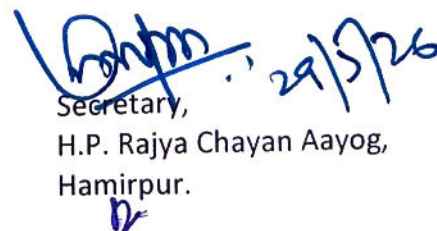 29/5/26
Secretary,
H.P. Rajya Chayan Aayog,
Hamirpur.